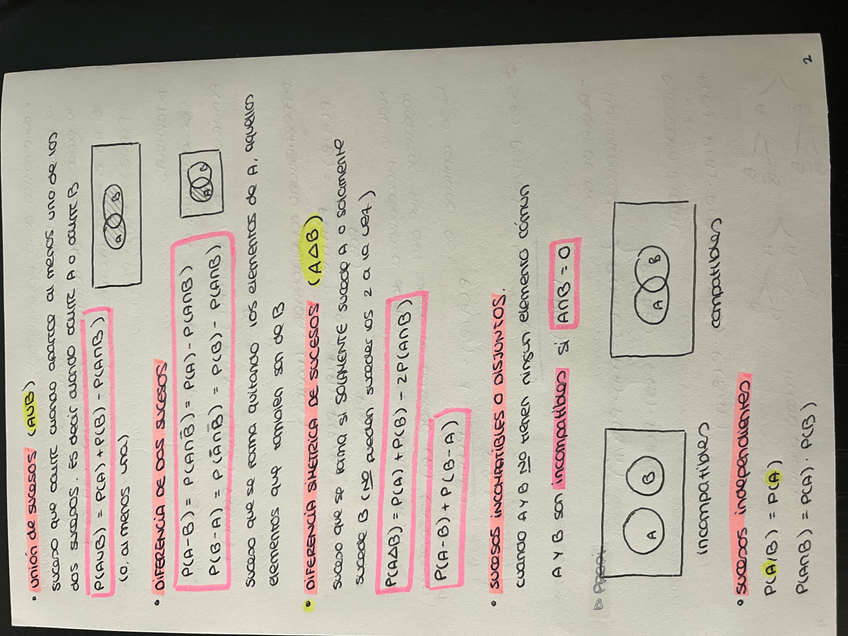 • unión de sucesos (A∪B)
suceso que ocurre cuando aparece al menos uno de los
dos sucesos. Es decir cuando ocurre A o ocurre B
P(A∪B) = P(A) + P(B) - P(A∩B)
(o, al menos una)
A B
• DIFERENCIA DE DOS SUCESOS
P(A-B) = P(A∩B̄) = P(A) - P(A∩B)
P(B-A) = P(Ā∩B) = P(B) - P(A∩B)
A B
suceso que se forma quitando los elementos de A, aquellos
elementos que tambien son de B
• DIFERENCIA SIMETRICA DE SUCESOS (A△B)
suceso que se forma si SOLAMENTE sucede A o solamente
sucede B (NO pueden suceder los 2 a la vez)
P(A△B) = P(A) + P(B) - 2P(A∩B)
P(A-B) + P(B-A)
• SUCESOS INCOMPATIBLES O DISJUNTOS.
cuando A y B NO tienen ningun elemento común
A y B son incompatibles si A∩B = 0
A B
A B
incompatibles compatibles
• sucesos independientes
P(A/B) = P(A)
P(A∩B) = P(A) · P(B)
2